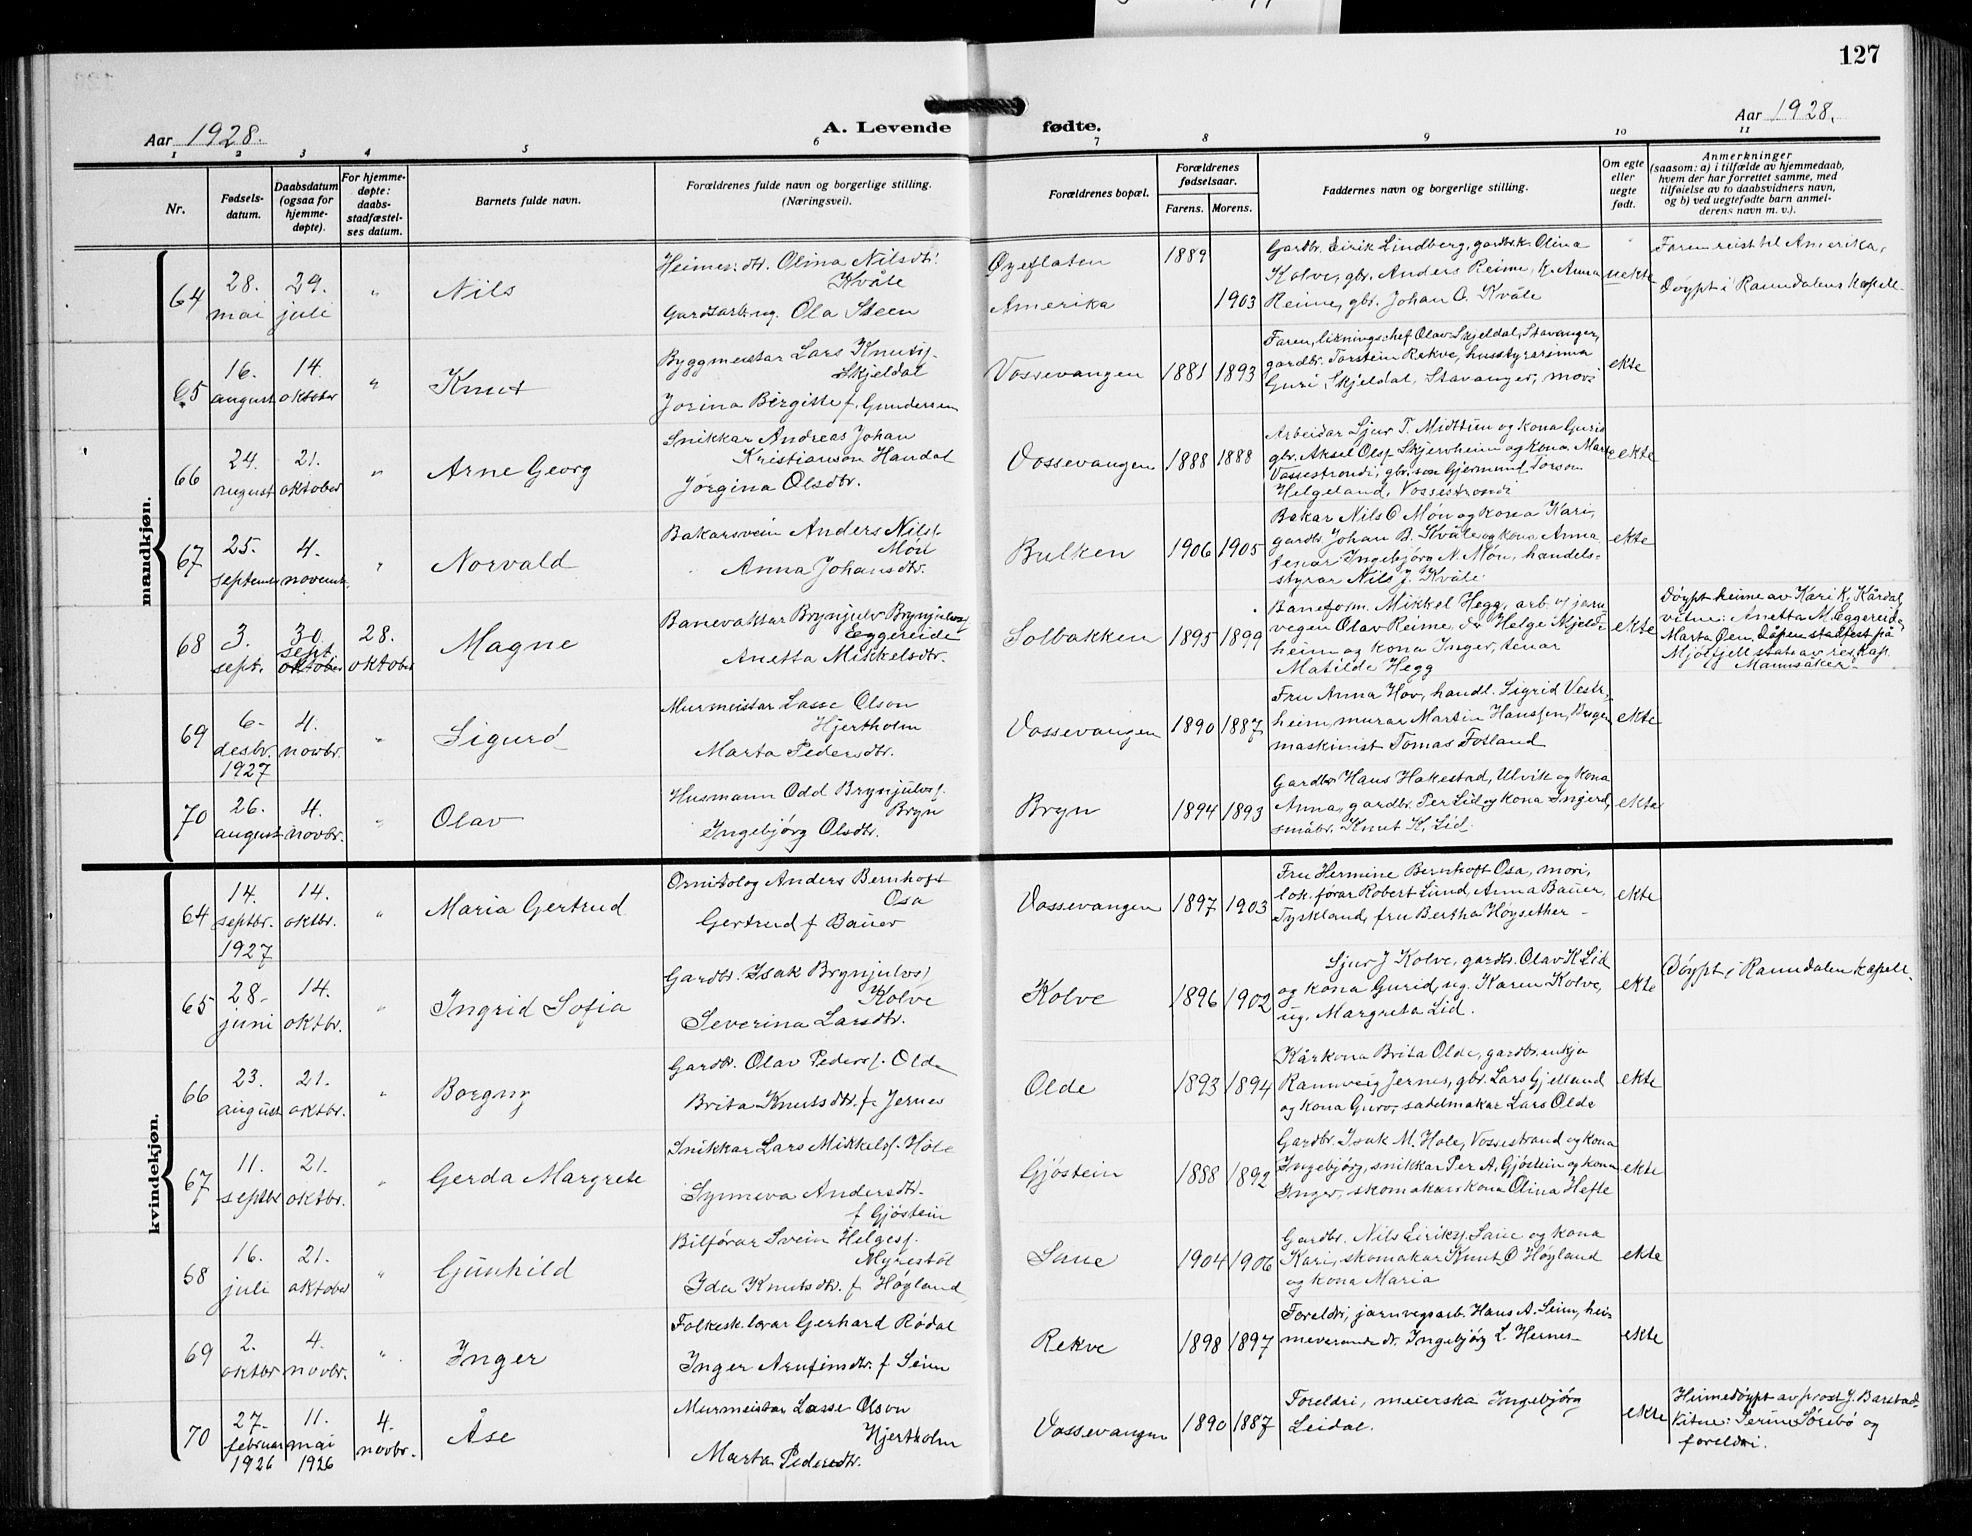 127
Aar 1928.
A. Levende fødte.
Aar 1928.
1 2 3 4 5 6 7 8 9 10 11
Nr.
Fødsels-
datum.
Daabsdatum
(ogsaa for
hjemme-
døpte).
For hjemme-
døpte:
daabs-
stadfæstel-
ses datum.
Barnets fulde navn.
Forældrenes fulde navn og borgerlige stilling.
(Næringsvei).
Forældrenes bopæl.
Forældrenes
fødselsaar.
Farens. Morens.
Faddernes navn og borgerlige stilling.
Om egte
eller
uegte
født.
Anmerkninger
(saasom: a) i tilfælde av hjemmedaab,
hvem der har forrettet samme, med
tilføielse av to daabsvidners navn,
og b) ved uegtefødte barn anmel-
derens navn m. v.).
mandkjøn.
64
28.
mai
29.
juli
"
Nils
Heimev. dtr. Olina Nilsdtr.
Kvåle
Gardsarb. ug. Ola Steen
Øyeflaten
Amerika
1889
1903
Gardbr. Eirik Lindberg, gardbr.k. Olina
Kolve, gbr. Anders Reime, k. Anna
Reime, gbr. Johan O. Kvåle
uekte
Faren reist til Amerika.
Døypt i Raundalens Kapell
65
16.
august
14.
oktober
"
Knut
Byggmeistar Lars Knutsf.
Skjeldal
Jorina Birgitte f. Gundersen
Vossevangen
1881 1893
Faren, likningschef Olav Skjeldal, Stavanger,
gardbr. Torstein Rekve, husstyrarinna
Guri Skjeldal, Stavanger, mori
ekte
66
24.
august
21.
oktober
"
Arne Georg
Snikkar Andreas Johan
Kristianson Handal
Jørgina Olsdtr.
Vossevangen
1888 1888
Arbeidar Sjur T. Midttun og kona Gurid
gbr. Aksel Olsf. Skjerveheim og kona Marta
Vossestrondi, gbr. son Gjermund Torson
Helgeland, Vossestrondi
ekte
67
25.
septembr
4.
novembr.
"
Norvald
Bakarsvein Anders Nilsf.
Møn
Anna Johansdtr.
Bulken
1906 1905
Bakar Nils O Møn og kona Kari,
gardbr. Johan B. Kvåle og kona Anna
tenar Ingebjørg N. Møn, handels-
styrar Nils J. Kvåle.
ekte
68
3.
sept.
30.
sept.
oktober
28.
oktober
Magne
Banevaktar Brynjulv Brynjulvsf
Eggereide
Anetta Mikkelsdtr.
Solbakken
1895 1899
Baneform. Mikkel Hegg, arb. v/ jarn-
vegen Olav Reime, Helge Mjelde-
heim og kona Inger, tenar
Matilde Hegg
ekte
Døypt heime av Kari K. Kårdal,
vitne: Anetta M. Eggereide,
Marta Øen. Dåpen stadfest på
Mjølfjell stat. av res. Kap.
Mannsåker
69
6.
desbr.
1927
4.
novbr.
"
Sigurd
Murmeistar Lasse Olson
Hjertholm
Marta Pedersdtr.
Vossevangen
1890 1887
Fru Anna Hov, handl. Sigrid Vestr-
heim, murar Martin Hanssen, Bergen
maskinist Tomas Fotland
ekte
70
26.
august
4.
novbr.
"
Olav
Husmann Odd Brynjulvsf.
Bryn
Ingebjørg Olsdtr.
Bryn
1894 1893
Gardbr Hans Hakestad, Ulvik og kona
Anna, gardbr. Per Lid og kona Ingerd,
småbr. Knut K. Lid.
ekte
kvindekjøn.
64
14.
septbr.
1927
14.
oktbr.
"
Maria Gertrud
Ornitolog Anders Bernhoft
Osa
Gertrud f Bauer
Vossevangen
1897 1903
Fru Hermine Bernhoft Osa, mori,
lok. førar Robert Lund, Anna Bauer,
Tyskland, fru Bertha Høysether
ekte
65
28.
juni
14.
oktbr.
"
Ingrid Sofia
Gardbr. Isak Brynjulvsf
Kolve
Severina Larsdtr.
Kolve
1896 1902
Sjur J Kolve, gardbr. Olav K Lid
og kona Gurid, ug. Karen Kolve,
ug. Margreta Lid.
ekte
Døypt i Raundalen kapell.
66
23.
august
21.
oktbr.
"
Borgny
Gardbr. Olav Pedersf. Olde
Brita Knutsdtr. f. Jernes
Olde
1893 1894
Kårkona Brita Olde, gardbr. enkja
Rannveig Jernes, gbr. Lars Gjelland
og kona Guro, sadelmakar Lars Olde
ekte
67
11.
septbr
21.
oktbr.
"
Gerda Margrete
Snikkar Lars Mikkelsf. Hole
Synneva Andersdtr.
f Gjøstein
Gjøstein
1888 1892
Gardbr. Isak M. Hole, Vossestrand og kona
Ingebjørg, snikkar Per A. Gjøstein og kona
Inger, skomakarkona Olina Hefte
ekte
68
16.
juli
21.
oktober
"
Gunhild
Bilførar Svein Helgesf.
Myrestøl
Ida Knutsdtr. f Høyland
Saue
1904 1906
Gardbr. Nils Eiriksf. Saue og kona
Kari, skomakar Knut O Høyland
og kona Maria
ekte
69
2.
oktbr
4.
novbr.
"
Inger
Folkesk. lærar Gerhard Rødal
Inger Arnfinsdtr. f Seim
Rekve
1898 1897
Foreldri, jarnvegsarb. Hans A. Seim, hei-
meverande dr. Ingebjørg L. Hernes
ekte
70
27.
februar
1926
11.
mai
1926
4.
novbr.
Åse
Murmeistar Lasse Olson
Hjertholm
Marta Pedersdtr.
Vossevangen
1890 1887
Foreldri, meierska Ingebjørg
Leidal.
ekte
Heimedøypt av prost J. Barstad.
Vitne: Serine Sørebø og
foreldri.